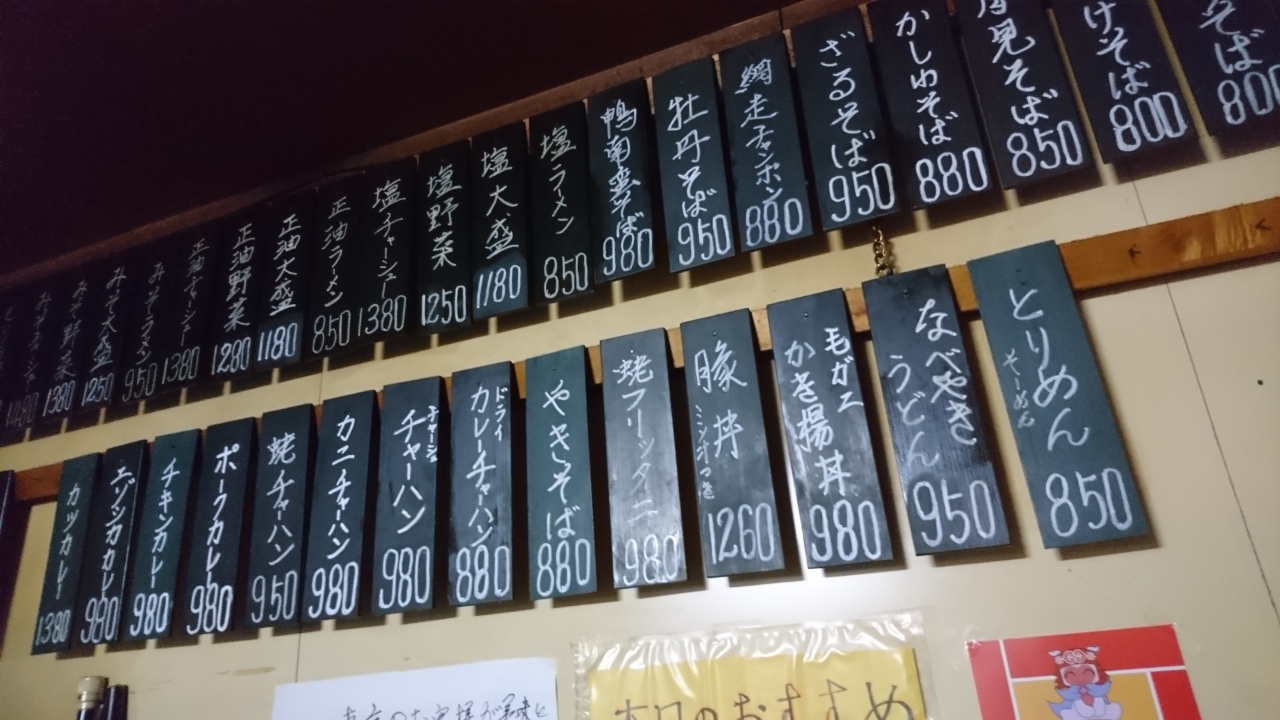 そば 800
けそば 800
月見そば 850
かしわそば 880
ざるそば 950
網走チャンポン 880
牡丹そば 950
鴨南蛮そば 980
塩ラーメン 850
塩大盛 1180
塩野菜 1250
塩チャーシュー 1380
正油ラーメン 850
正油大盛 1180
正油野菜 1280
正油チャーシュー 1380
みそラーメン 950
みそ大盛 1250
みそ野菜 1380
みそチャーシュー 1480
とりめん
そーめん
850
なべやき
うどん
950
毛ガニ
かき揚丼
980
豚丼
ミニソバつき
1260
蛯フリッタニ 980
やきそば 880
ドライ
カレーチャーハン 880
チャーシュー
チャーハン 980
カニチャーハン 980
蛯チャーハン 950
ポークカレー 980
チキンカレー 980
エゾシカカレー 980
カツカレー 1380
本日のおすすめ